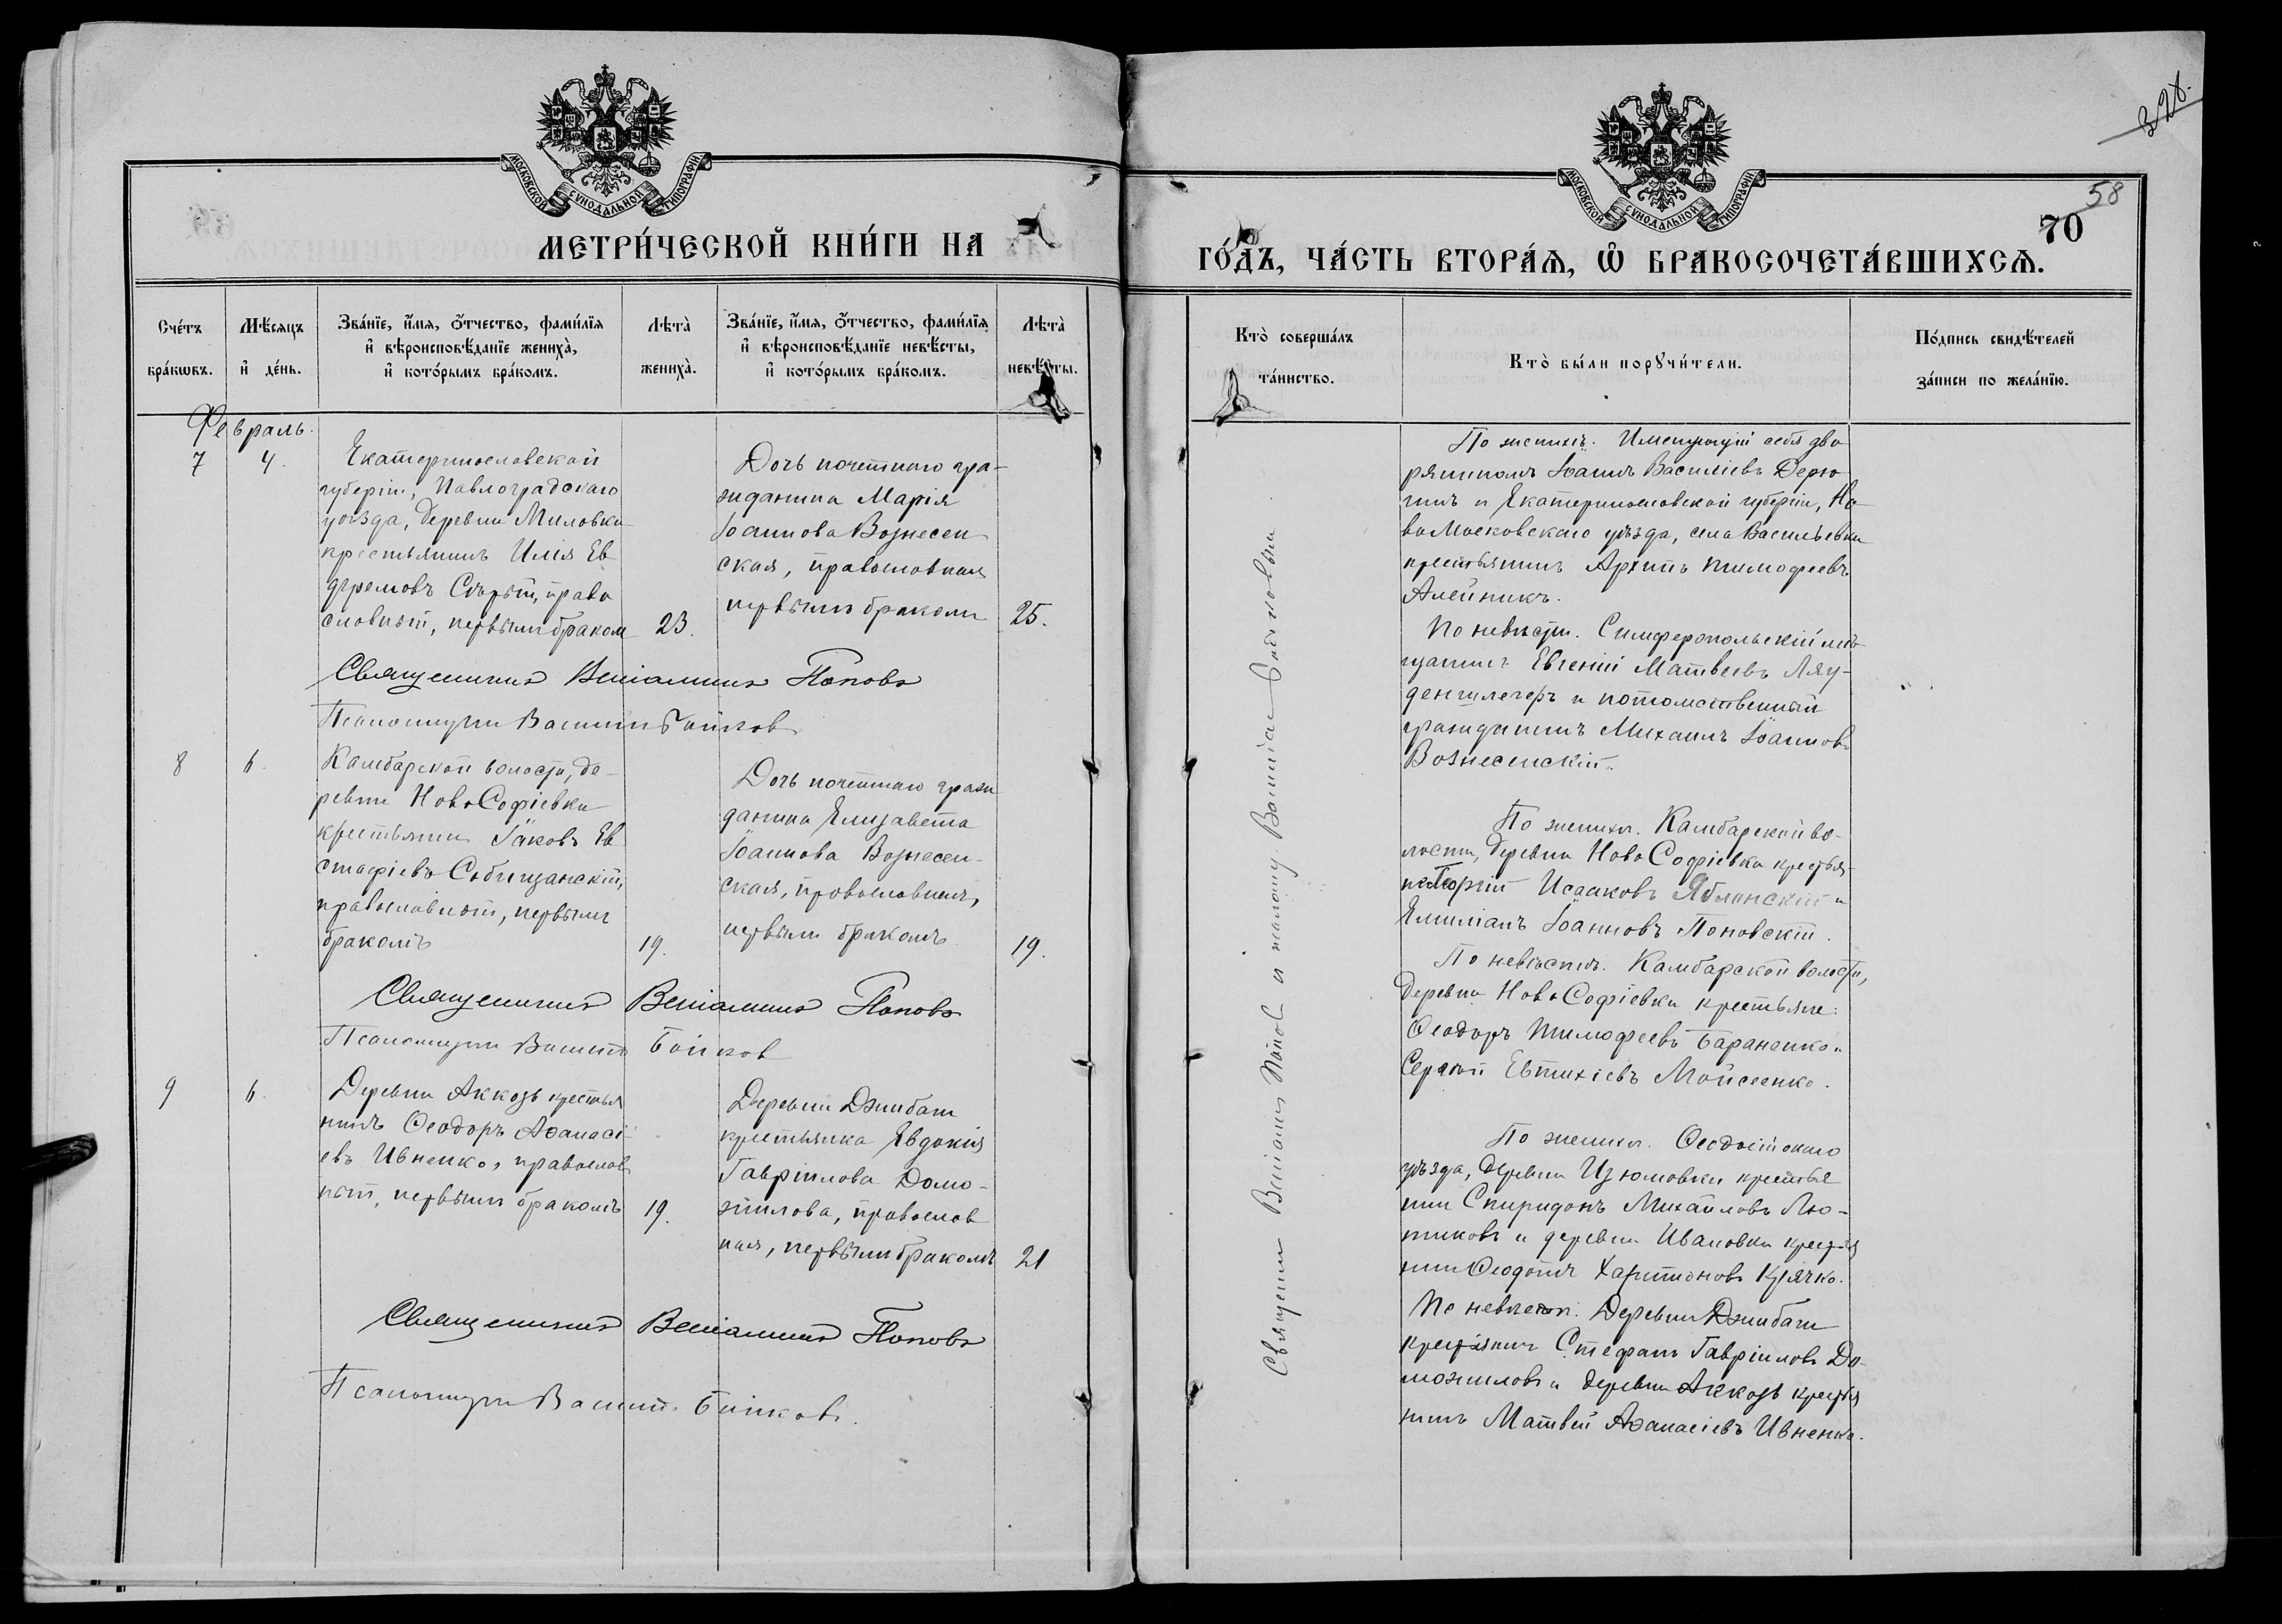 МОСКОВСКОЙ СѴНОДАЛЬНОЙ ТИПОГРАФІИ
МЕТРИ́ЧЕСКОЙ КНИ́ГИ НА
Сче́тъ бра́кωвъ.
Мѣ́сяцъ и҆ де́нь.
Зва́нїе, и҆́мѧ, ѻ҆́тчество, фами́лїѧ
и҆ вѣроисповѣ́данїе жениха̀,
и҆ кото́рымъ бра́комъ.
Лѣта̀ жениха̀.
Зва́нїе, и҆́мѧ, ѻ҆́тчество, фами́лїѧ
и҆ вѣроисповѣ́данїе невѣ́сты,
и҆ кото́рымъ бра́комъ.
Лѣта̀ невѣ́сты.
Февраль.
7
4.
Екатеринославской
губерніи, Павлоградскаго
уѣзда, деревни Миловки
крестьянинъ Илія Ев
фремовъ Сѣрый, право
славный, первымъ бракомъ
23.
Дочь почетнаго гра-
жданина Марія
Іоаннова Вознесен
ская, православная
первымъ бракомъ
25.
Священникъ Веніаминъ Поповъ
Псаломщикъ Василій Бойков
8
6.
Камбарской волости, де-
ревни НовоСофіевки
крестьянинъ Іаковъ Ев
стафіевъ Собищанскій,
православный, первымъ
бракомъ
19.
Дочь почетнаго граж
данина Елизавета
Іоаннова Вознесен-
ская, православная,
первымъ бракомъ
19.
Священникъ Веніаминъ Поповъ
Псаломщикъ Василій Бойков
9
6.
Деревни Аккозъ крестья
нинъ Ѳеодоръ Аѳанасі-
евъ Ивненко, православ
ный, первымъ бракомъ
19.
Деревни Джибаш
крестьянка Евдокія
Гавріилова Домо-
жилова, православ
ная, первымъ бракомъ
21
Священникъ Веніаминъ Поповъ
Псаломщикъ Василій Бойковъ.
328.
58
70
МОСКОВСКОЙ СѴНОДАЛЬНОЙ ТИПОГРАФІИ
ГО́ДЪ, ЧА́СТЬ ВТОРА́Ѧ, Ѽ БРАКОСОЧЕТА́ВШИХСѦ.
Кто̀ соверша́лъ та́инство.
Кто̀ бы́ли порꙋчи́тели.
По́дпись свидѣ́телей за́писи по жела́нїю.
Священникъ Веніаминъ Попов и псаломщ. Василій
По женихѣ. Именующій себя дво
ряниномъ Іоаннъ Василіевъ Дерю
гинъ и Екатеринославской губерніи, Но
воМосковскаго уѣзда, села Васильевки
крестьянинъ Архипъ Тимофеевъ
Алейникъ.
По невѣстѣ. Симферопольскій мѣ
щанинъ Евгеній Матвеевъ Ляу-
деншлегеръ и потомственный
гражданинъ Михаилъ Іоанновъ
Вознесенскій.
По женихѣ. Камбарской во-
лости, деревни НовоСофіевки крестья-
не Георгій Исааковъ Яблонскій и
Емиліанъ Іоанновъ Поновскій.
По невѣстѣ. Камбарской волости,
деревни НовоСофіевки крестьяне:
Ѳеодоръ Тимофеевъ Бараненко и
Сергѣй Евтихіевъ Мойсеенко.
По женихѣ. Ѳеодосійскаго
уѣзда, деревни Изюмовки крестья
нин Спиридонъ Михайловъ Лю-
тиковъ и деревни Ивановки крестья
нин Ѳеодотъ Харитоновъ Крячко.
По невѣстѣ. Деревни Джибаш
крестьянинъ Стефанъ Гавріиловъ До-
можиловъ и деревни Аккозъ крестья
нинъ Матвѣй Аѳанасіевъ Ивненко.